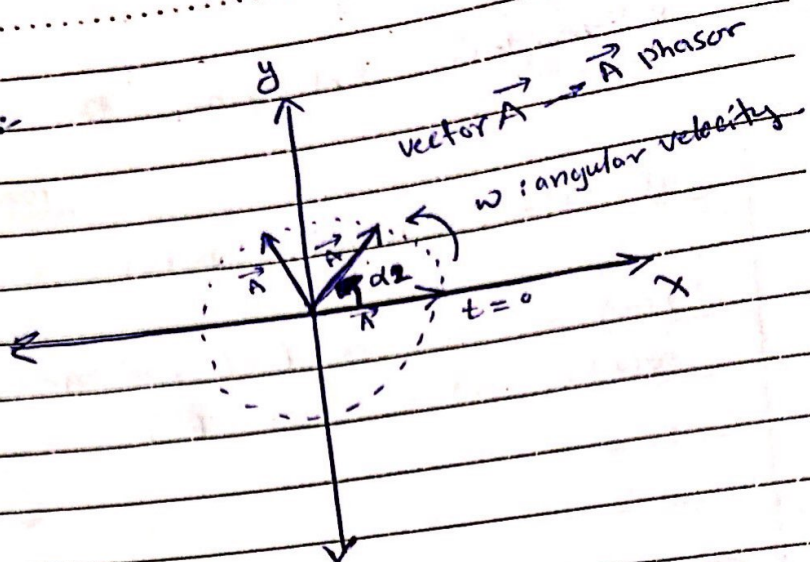 y
vector A⃗ → A⃗ phasor
w : angular velocity
A⃗
A⃗
α2
A⃗
t = 0
x